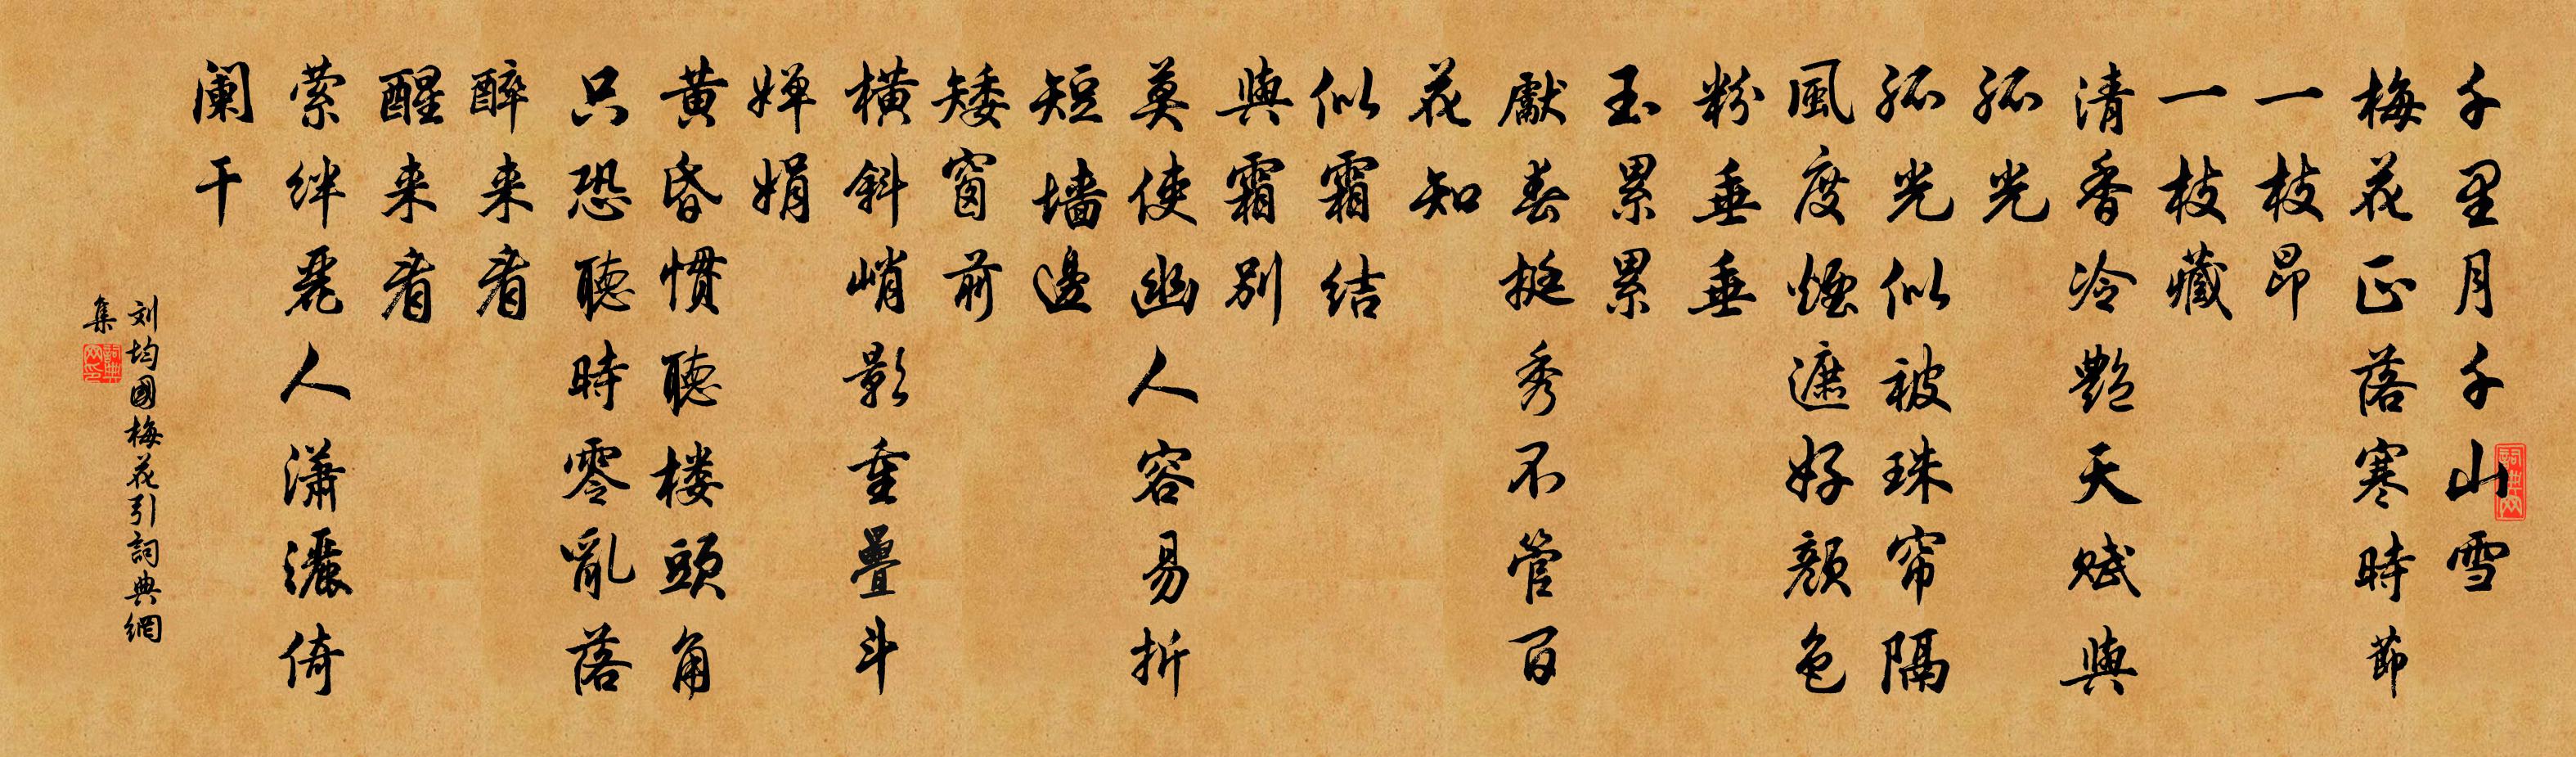 千里月千山雪
梅花正落寒時節
一枝昂
一枝藏
清香冷艷天赋與
孤光
孤光似被珠帘隔
風度煙遮好顔色
粉垂垂
玉累累
獻春挺秀不管百
花知
似霜结
與霜别
莫使幽人容易折
短墙邊
矮窗前
橫斜峭影重疊斗
婵娟
黄昏惯聽楼頭角
只恐聽時零亂落
醉来看
醒来看
萦绊麗人潇灑倚
阑干
刘均國梅花引詞典網
集
詞典网
詞典网印